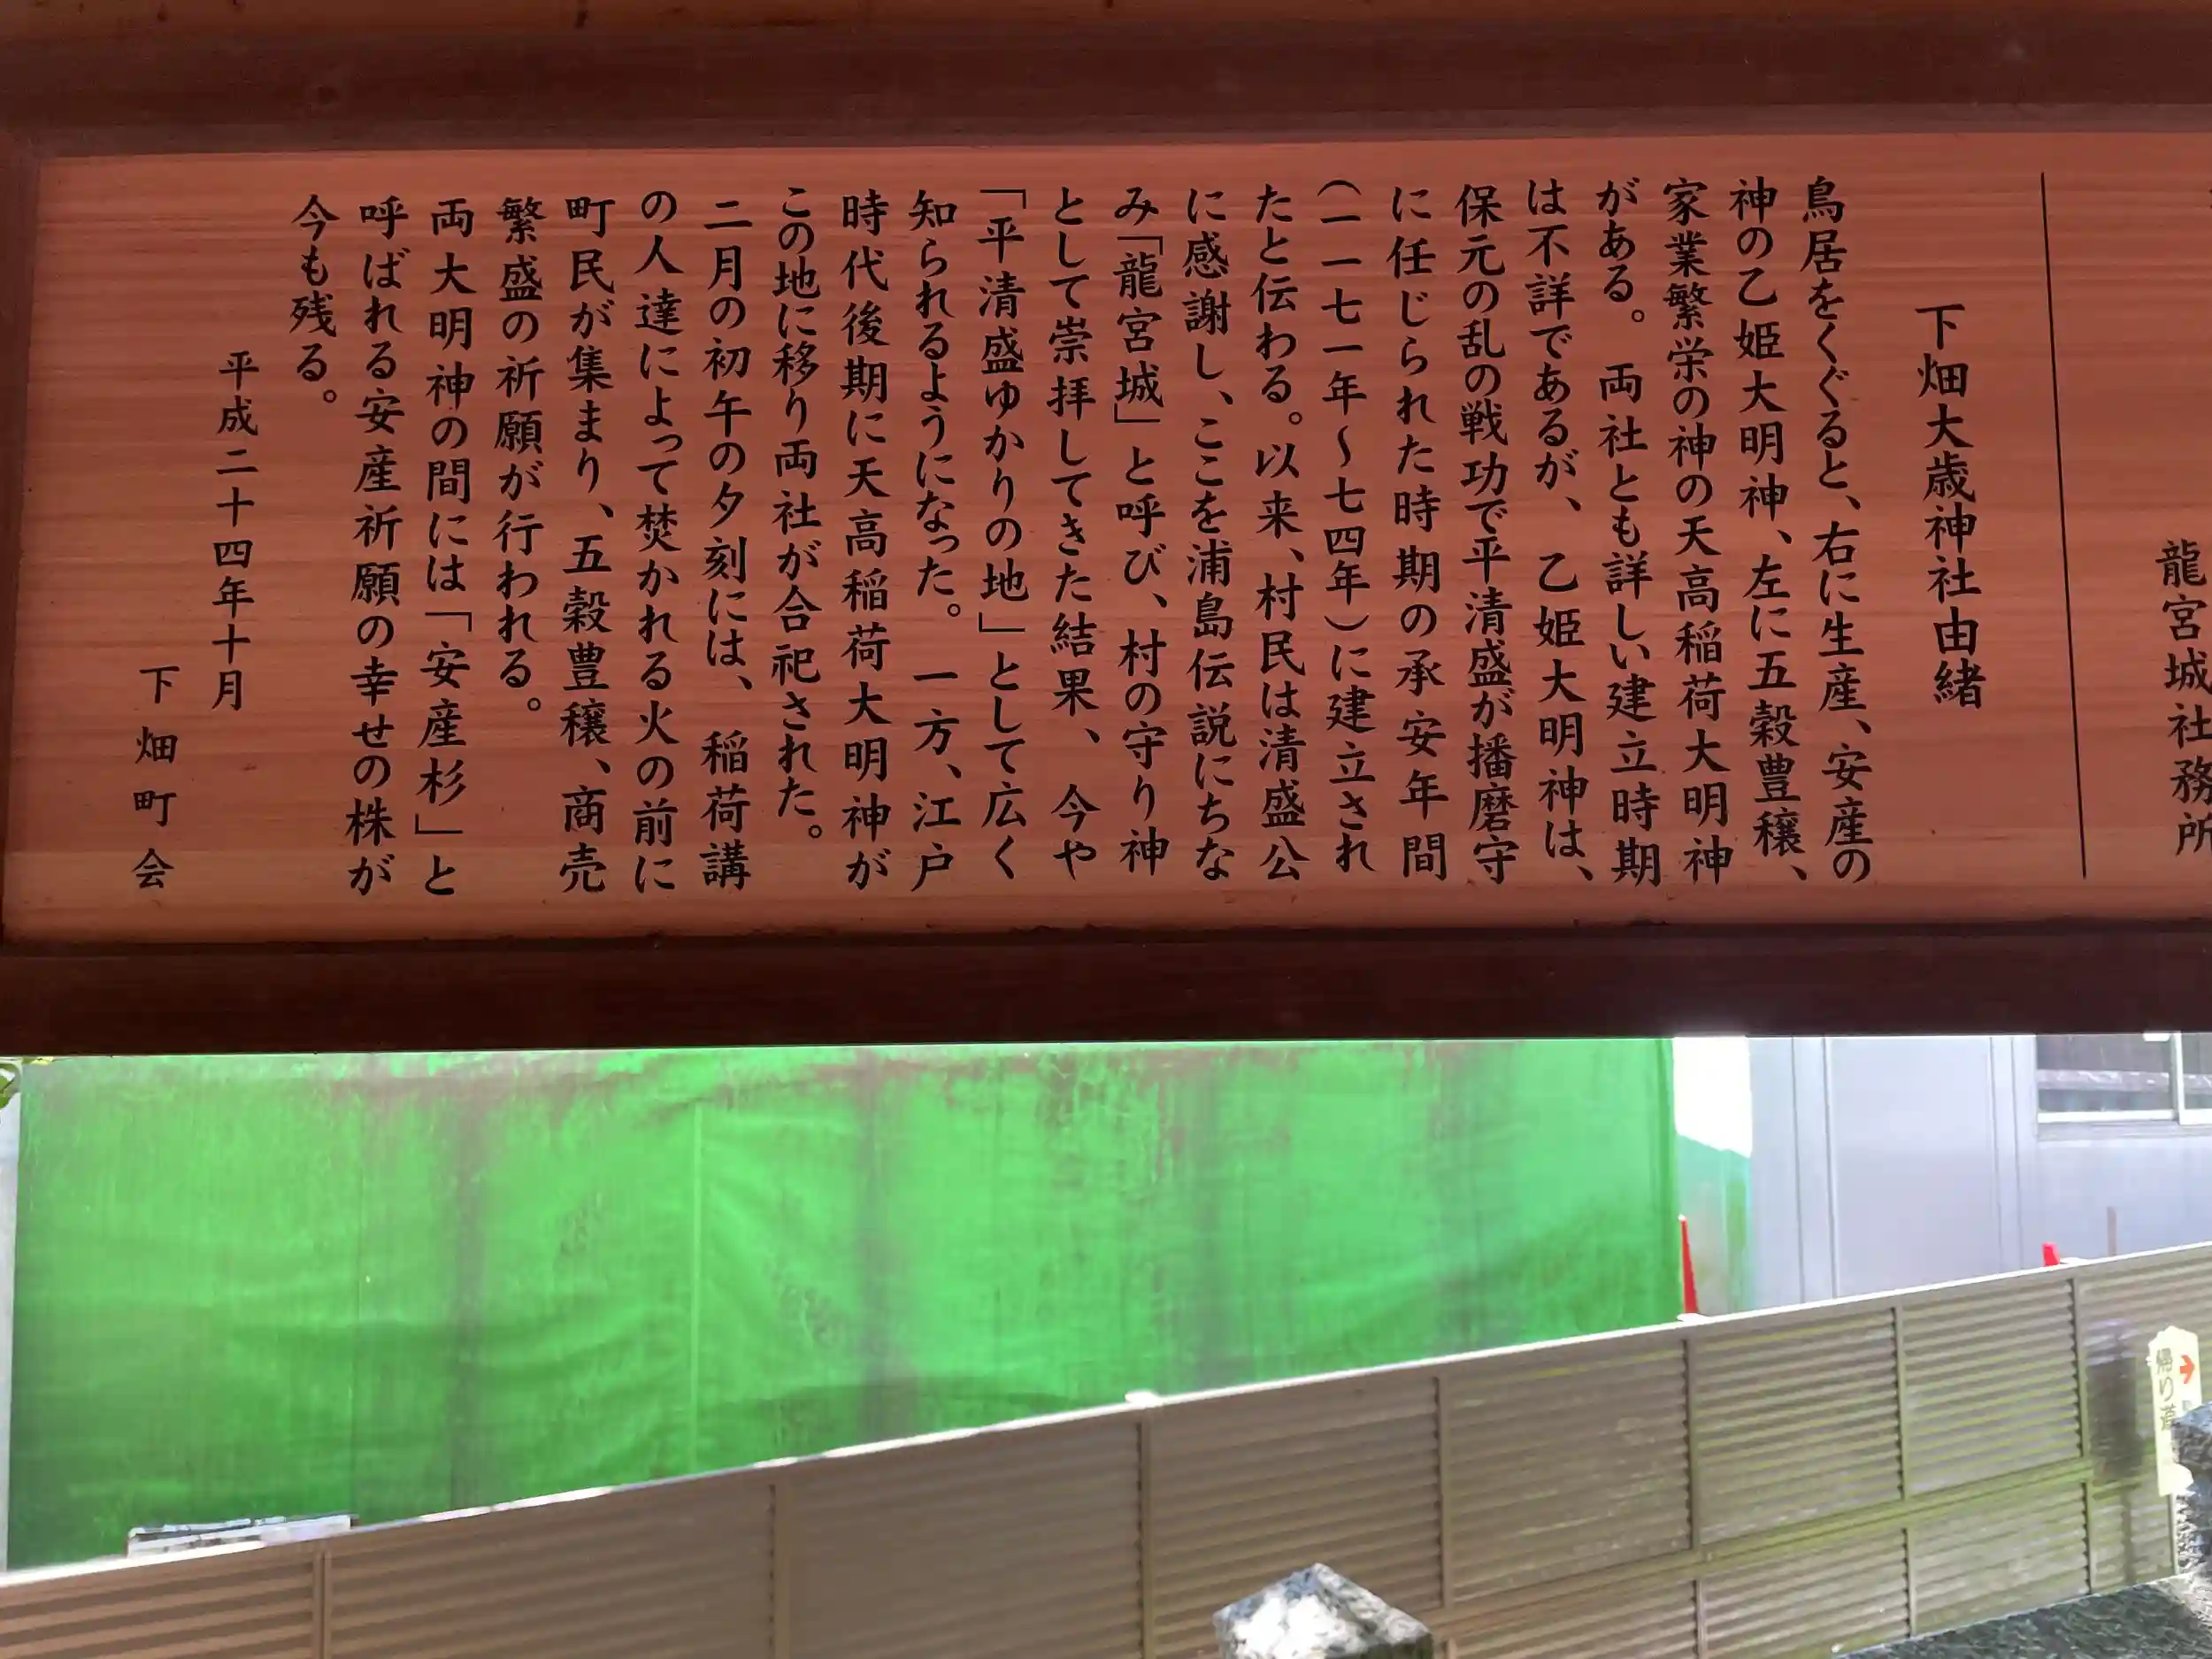 龍宮城社務所
下畑大歳神社由緒
鳥居をくぐると、右に生産、安産の
神の乙姫大明神、左に五穀豊穣、
家業繁栄の神の天高稲荷大明神
がある。両社とも詳しい建立時期
は不詳であるが、乙姫大明神は、
保元の乱の戦功で平清盛が播磨守
に任じられた時期の承安年間
(一一七一年～七四年)に建立され
たと伝わる。以来、村民は清盛公
に感謝し、ここを浦島伝説にちな
み「龍宮城」と呼び、村の守り神
として崇拝してきた結果、今や
「平清盛ゆかりの地」として広く
知られるようになった。一方、江戸
時代後期に天高稲荷大明神が
この地に移り両社が合祀された。
二月の初午の夕刻には、稲荷講
の人達によって焚かれる火の前に
町民が集まり、五穀豊穣、商売
繁盛の祈願が行われる。
両大明神の間には「安産杉」と
呼ばれる安産祈願の幸せの株が
今も残る。
平成二十四年十月
下畑町会
帰り道